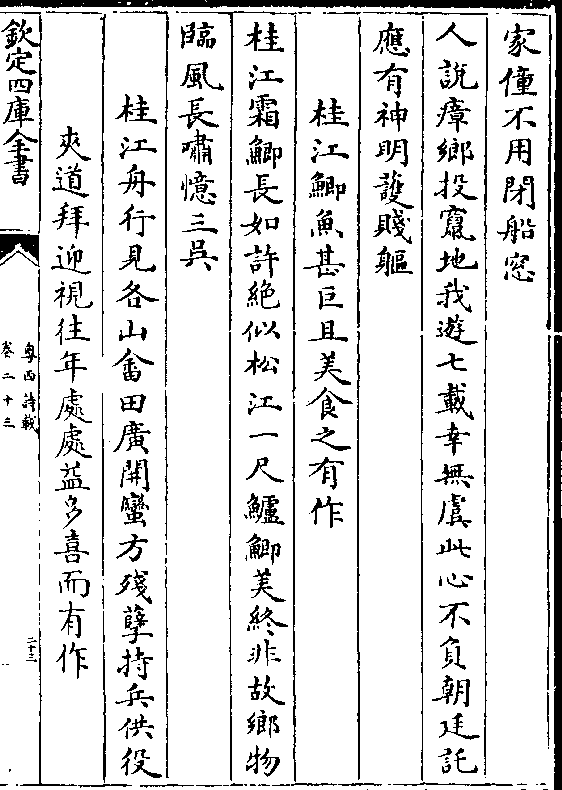 家僮不用閉船窓
人說瘴鄉投竄地我遊七載幸無虞此心不負朝廷託
應有神明䕶賤軀
桂江鯽魚甚巨且美食之有作
桂江霜鯽長如許絶似松江一尺鱸鯽美終非故鄉物
臨風長嘯憶三吳
桂江舟行見各山畬田廣開蠻方殘孽持兵供役
夾道拜迎視往年處處益多喜而有作
欽定四庫全書
粤西詩載
卷二十三
二十三